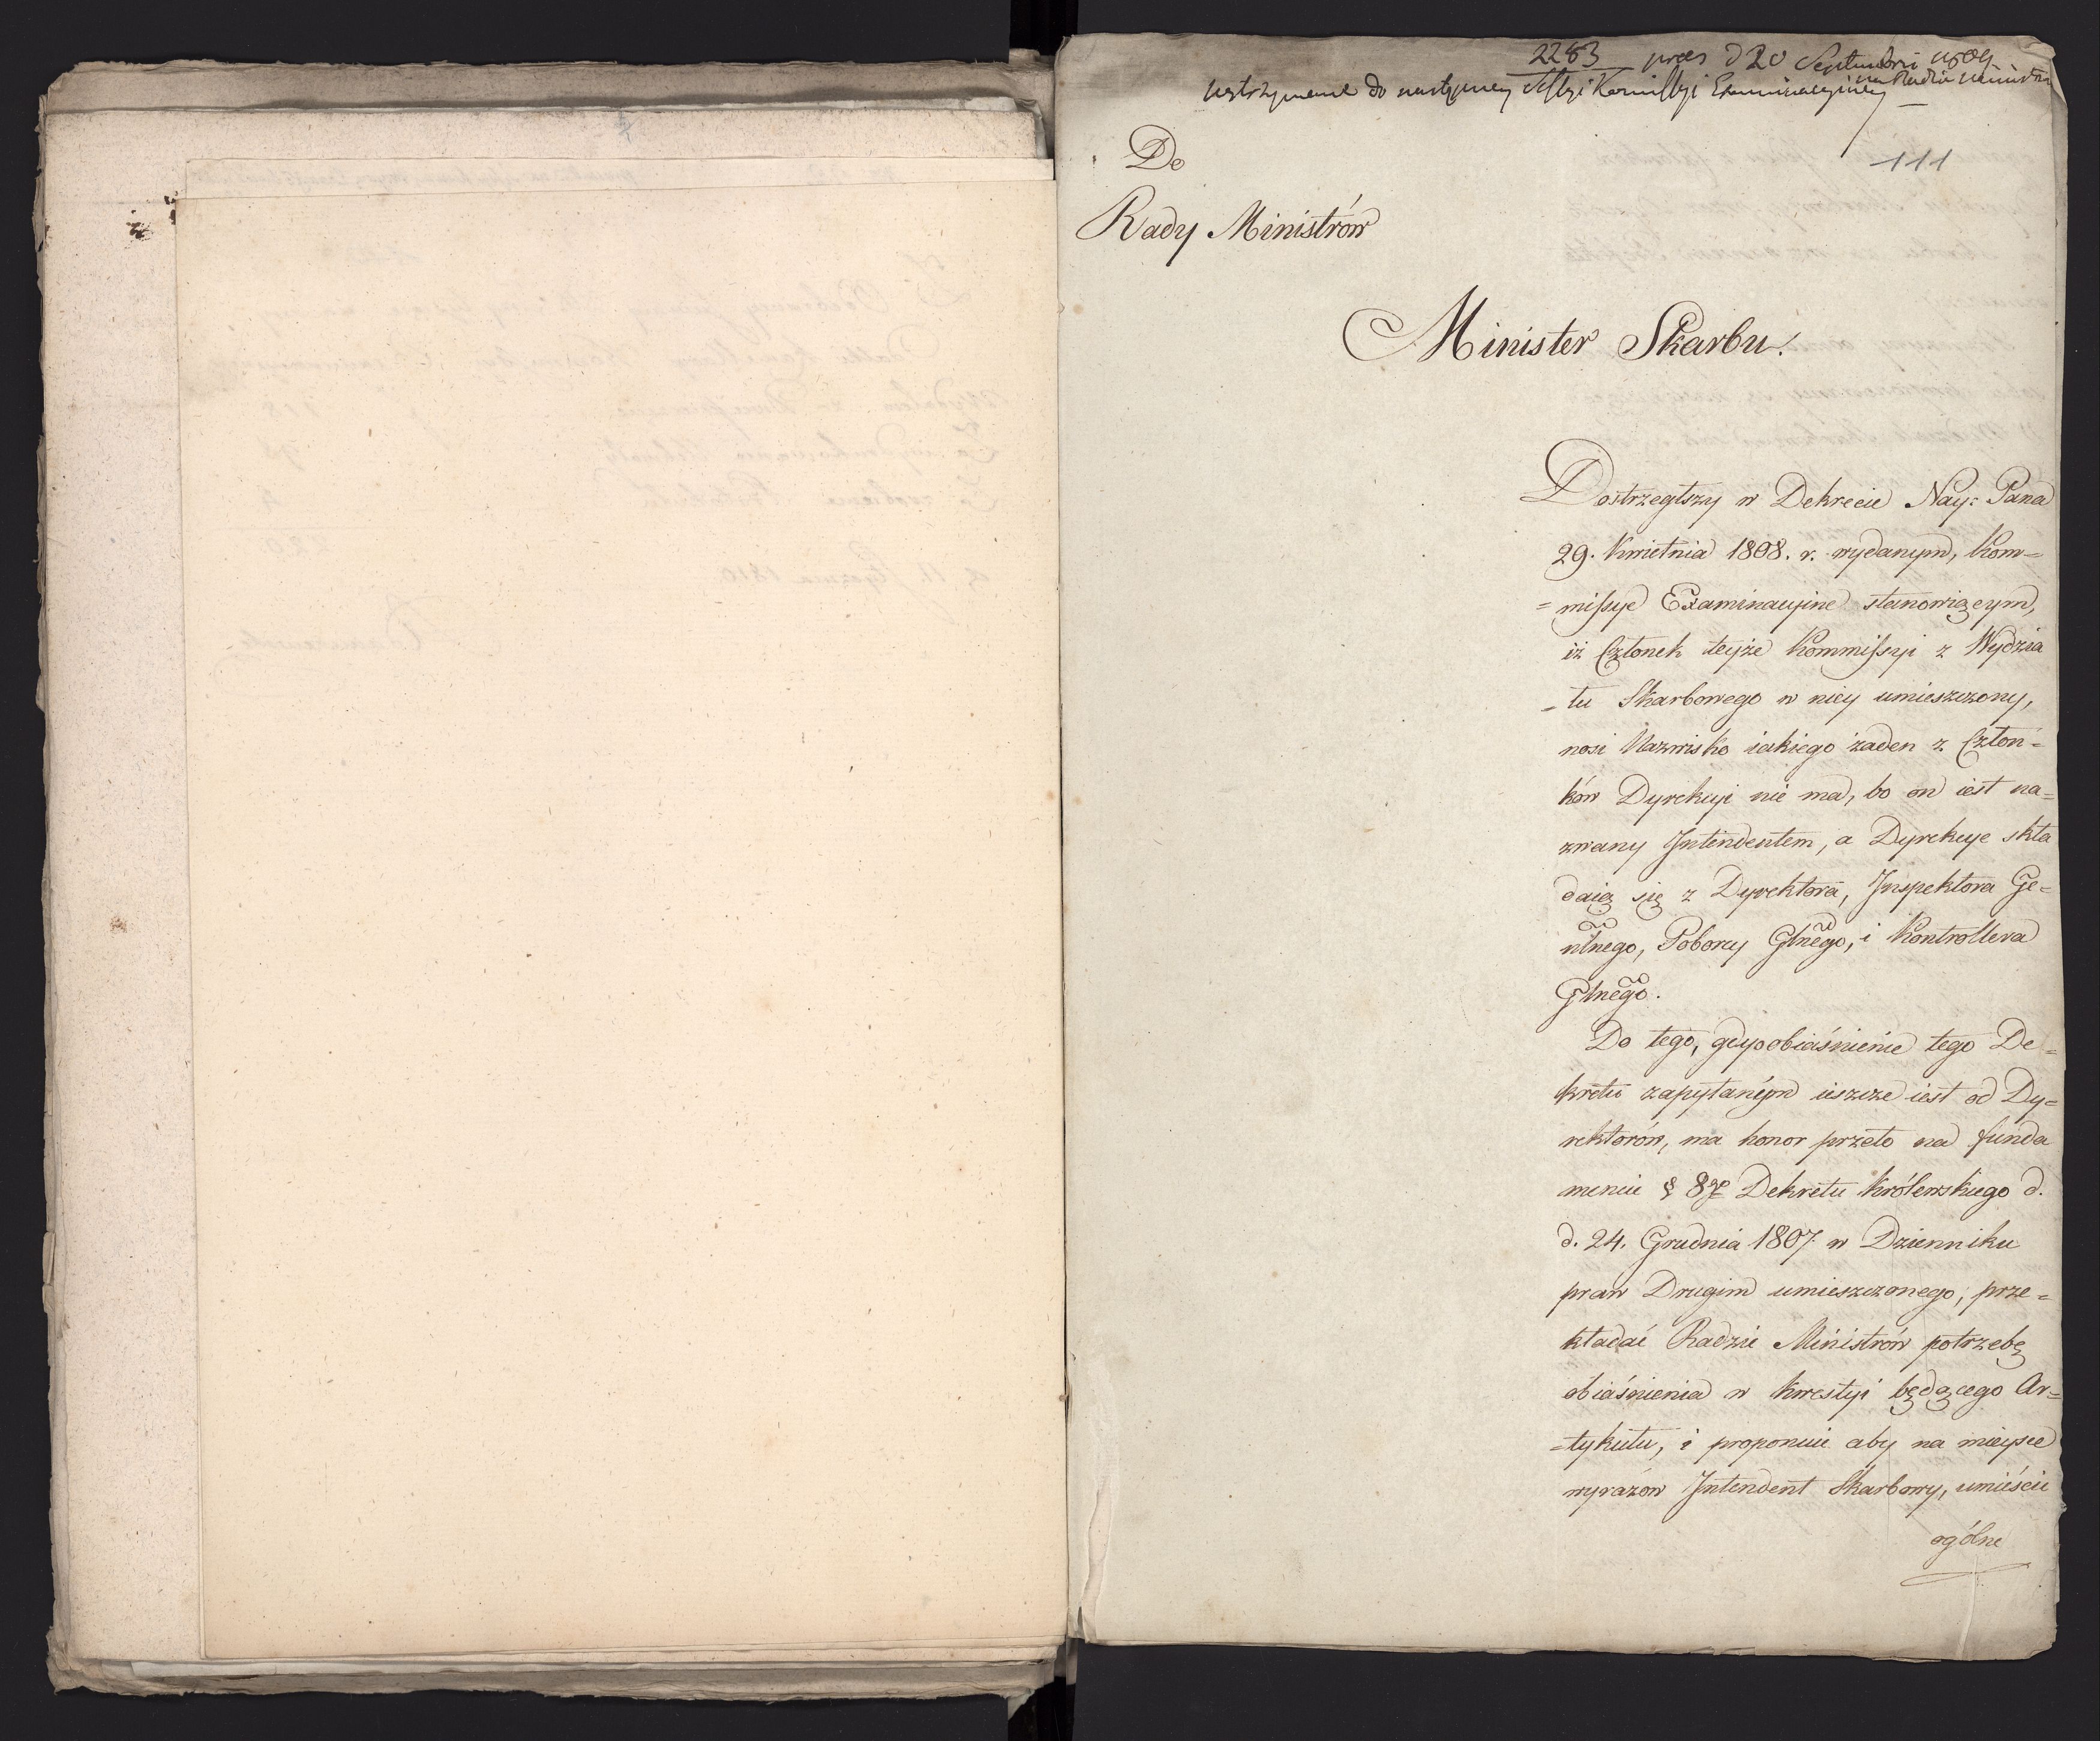 2283 præs d 20 Septembri 1809
na Radzie Ministr
wstrzymane do następney Sessyi Kommissyi Examinacyiney
111
Do
Rady Ministrów
Minister Skarbu.
Dostrzegłszy w Dekrecie Nay: Pana
29. Kwietnia 1808. r. wydanym, Kom=
=missye Examinacyine stanowiącym,
iż Członek teyże Kommissyi z Wydzia
=łu Skarbowego w niey umieszczony,
nosi Nazwisko iakiego żaden z Człon=
ków Dyrekcyi nie ma, bo on iest na=
zwany Intendentem, a Dyrekcye skła
daią się z Dyrektora, Inspektora Ge=
nlnego, Poborcy Glnego, i Kontrollera
Glnego.
Do tego, gdy o obiaśnienie tego De=
kretu zapytanym ieszcze iest od Dy=
rektorów, ma honor przeto na funda
mencie § 8go Dekretu Królewskiego d.
d. 24. Grudnia 1807. w Dzienniku
praw Drugim umieszczonego, prze=
kładać Radzie Ministrów potrzebę
obiaśnienia w kwestyi będącego Ar=
=tykułu, i proponuie aby na mieysce
wyrazów Intendent Skarbowy, umieścić
ogólne